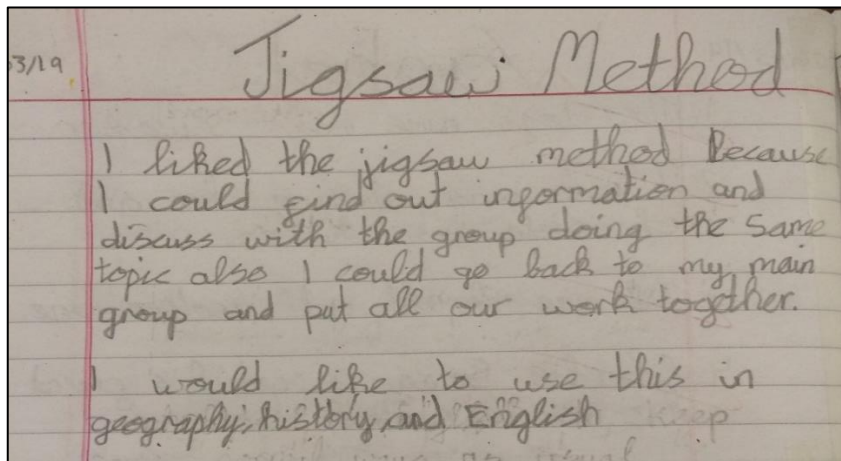 3/19
Jigsaw Method
I liked the jigsaw method Because
I could find out information and
discuss with the group doing the same
topic also I could go back to my main
group and put all our work together.
I would like to use this in
geography, history and English